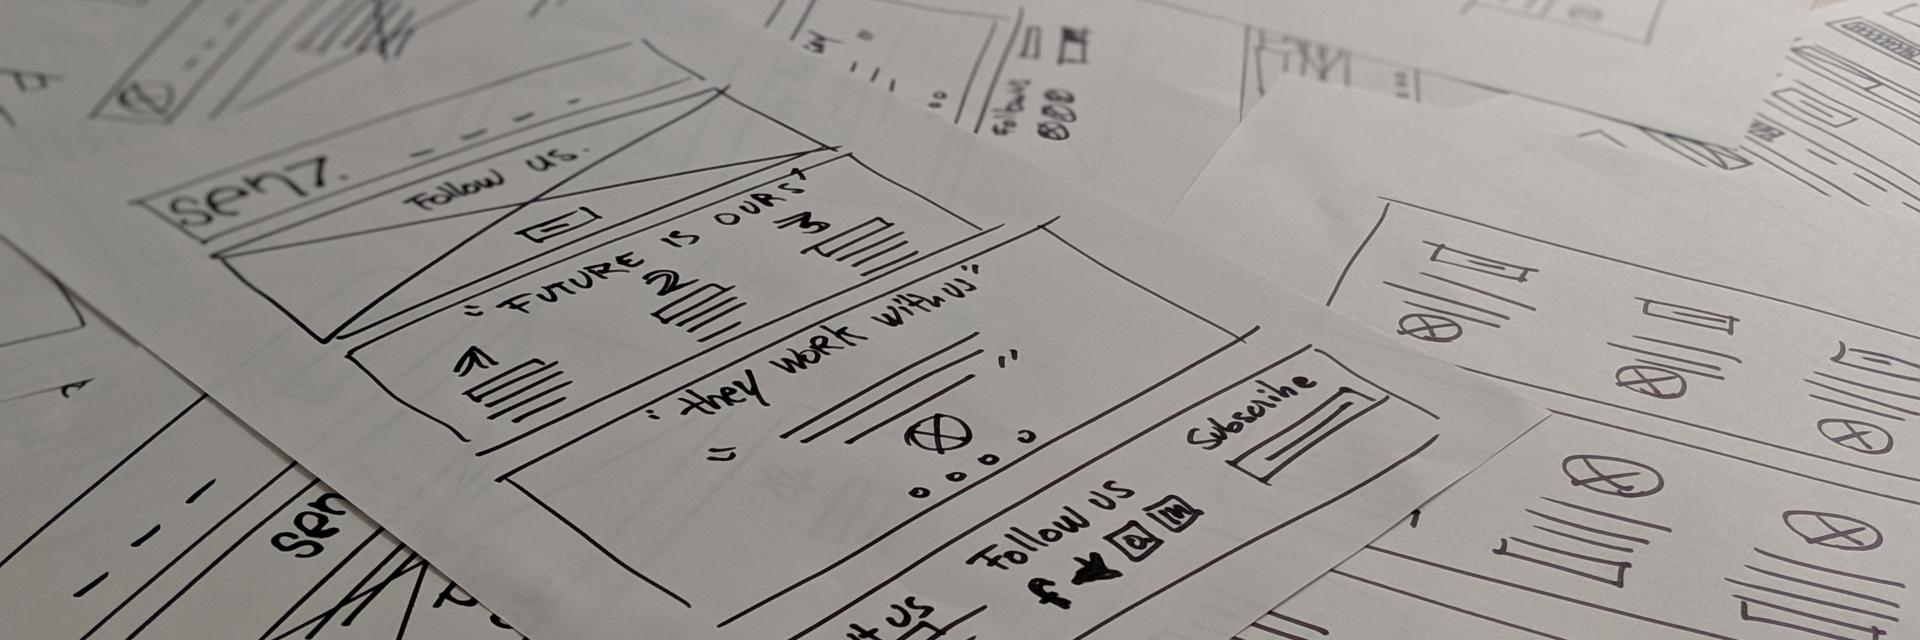 sen7.
Follow us.
"FUTURE IS OURS"
1
2
3
"they work with us"
Subscribe
Follow us
f
in
us
sen
Follow us